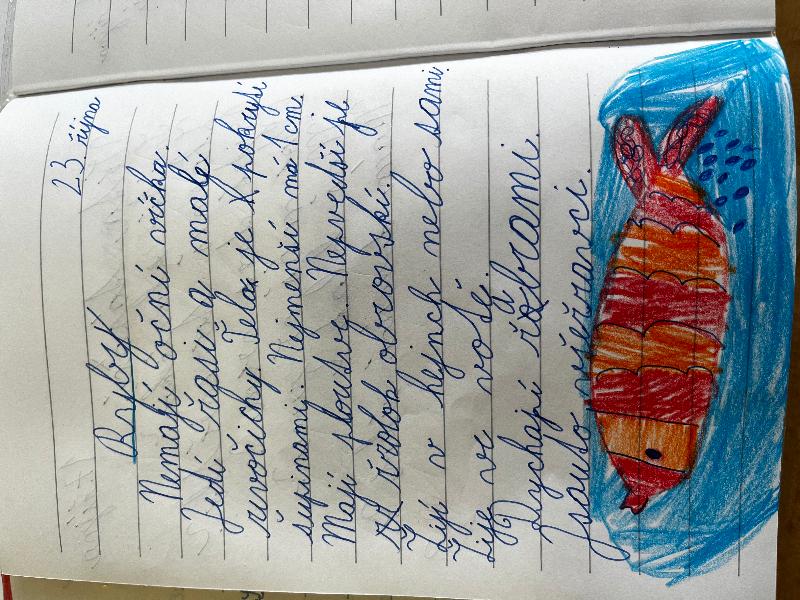 23. října
Ryby
Nemají oční víčka.
Jedí řasi a malé
živočichy. Telo je pokrytí
šupinami. Nejmenší má 1 cm.
Mají ploutve. Nejvedší je
žralok obrovskí.
Žijí v hejnch nebo sami.
Žije ve voďe.
Dychají žábrami.
Jsou to